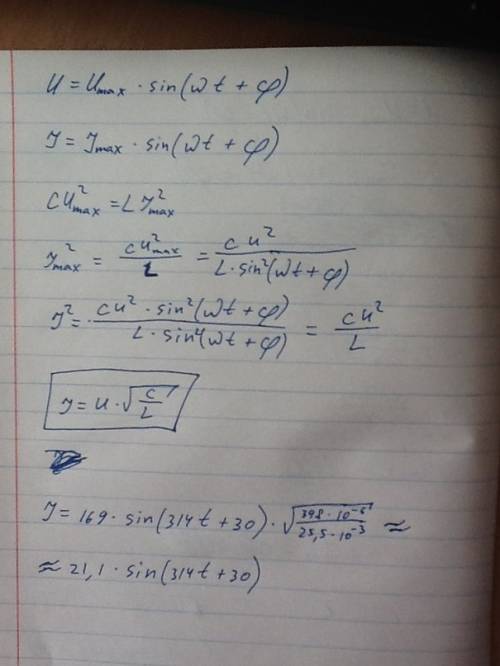 U = U_max · sin(ωt + φ)
J = J_max · sin(ωt + φ)
CU²_max = L J²_max
J²_max = CU²_max / L = CU² / (L · sin²(ωt + φ))
J² = CU² · sin²(ωt + φ) / (L · sin²(ωt + φ)) = CU² / L
J = U · √(C/L)
J = 169 · sin(314t + 30) · √(398 · 10⁻⁶ / 25,5 · 10⁻³) ≈
≈ 21,1 · sin(314t + 30)